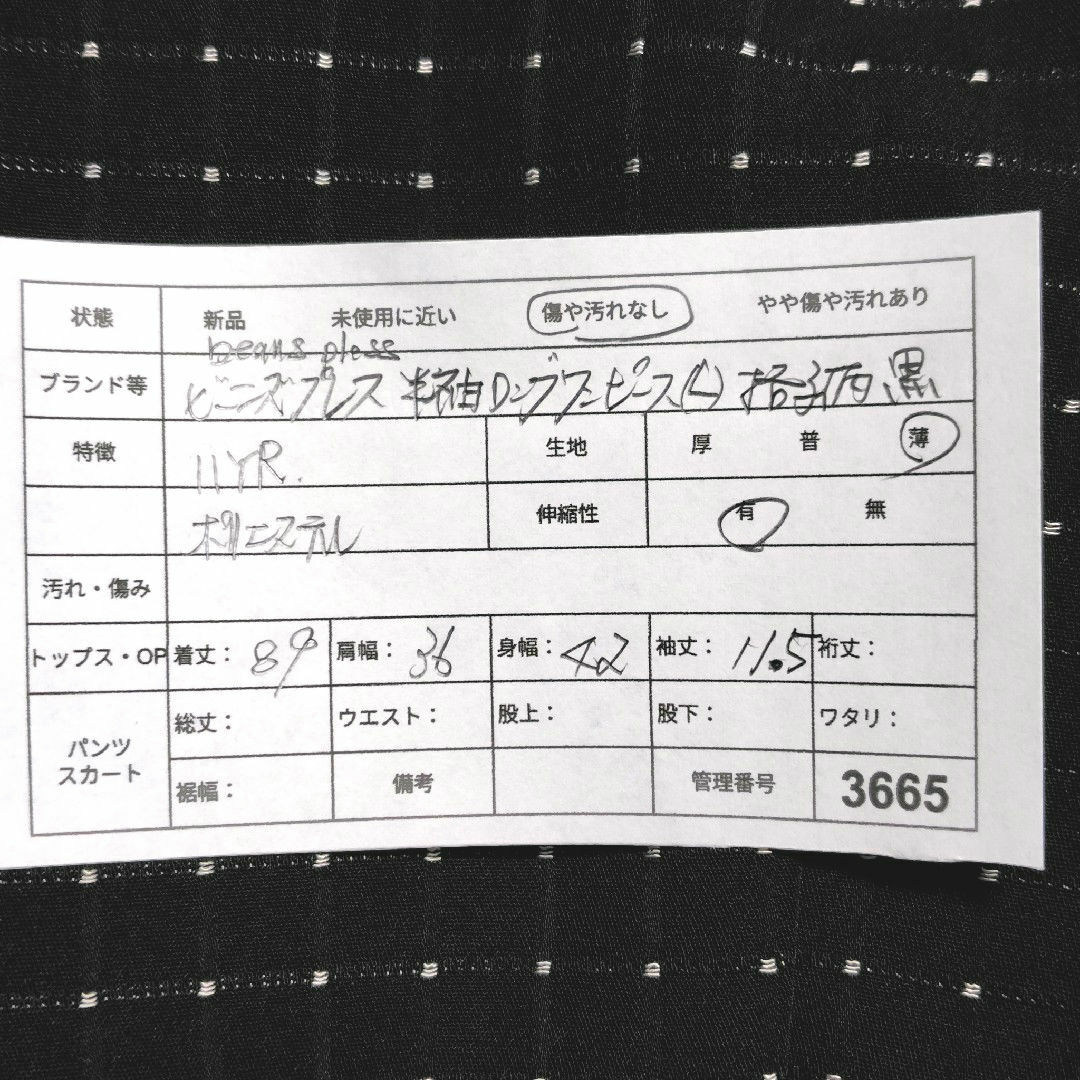 状態 新品 未使用に近い 傷や汚れなし やや傷や汚れあり
beans pless
ブランド等 ビーンズプレス 半袖ロングワンピース(L) 格子柄 黒
特徴 11YR. 生地 厚 普 薄
ポリエステル 伸縮性 有 無
汚れ・傷み
トップス・OP 着丈: 89 肩幅: 36 身幅: 42 袖丈: 11.5 裄丈:
パンツ スカート
総丈: ウエスト: 股上: 股下: ワタリ:
裾幅: 備考 管理番号 3665